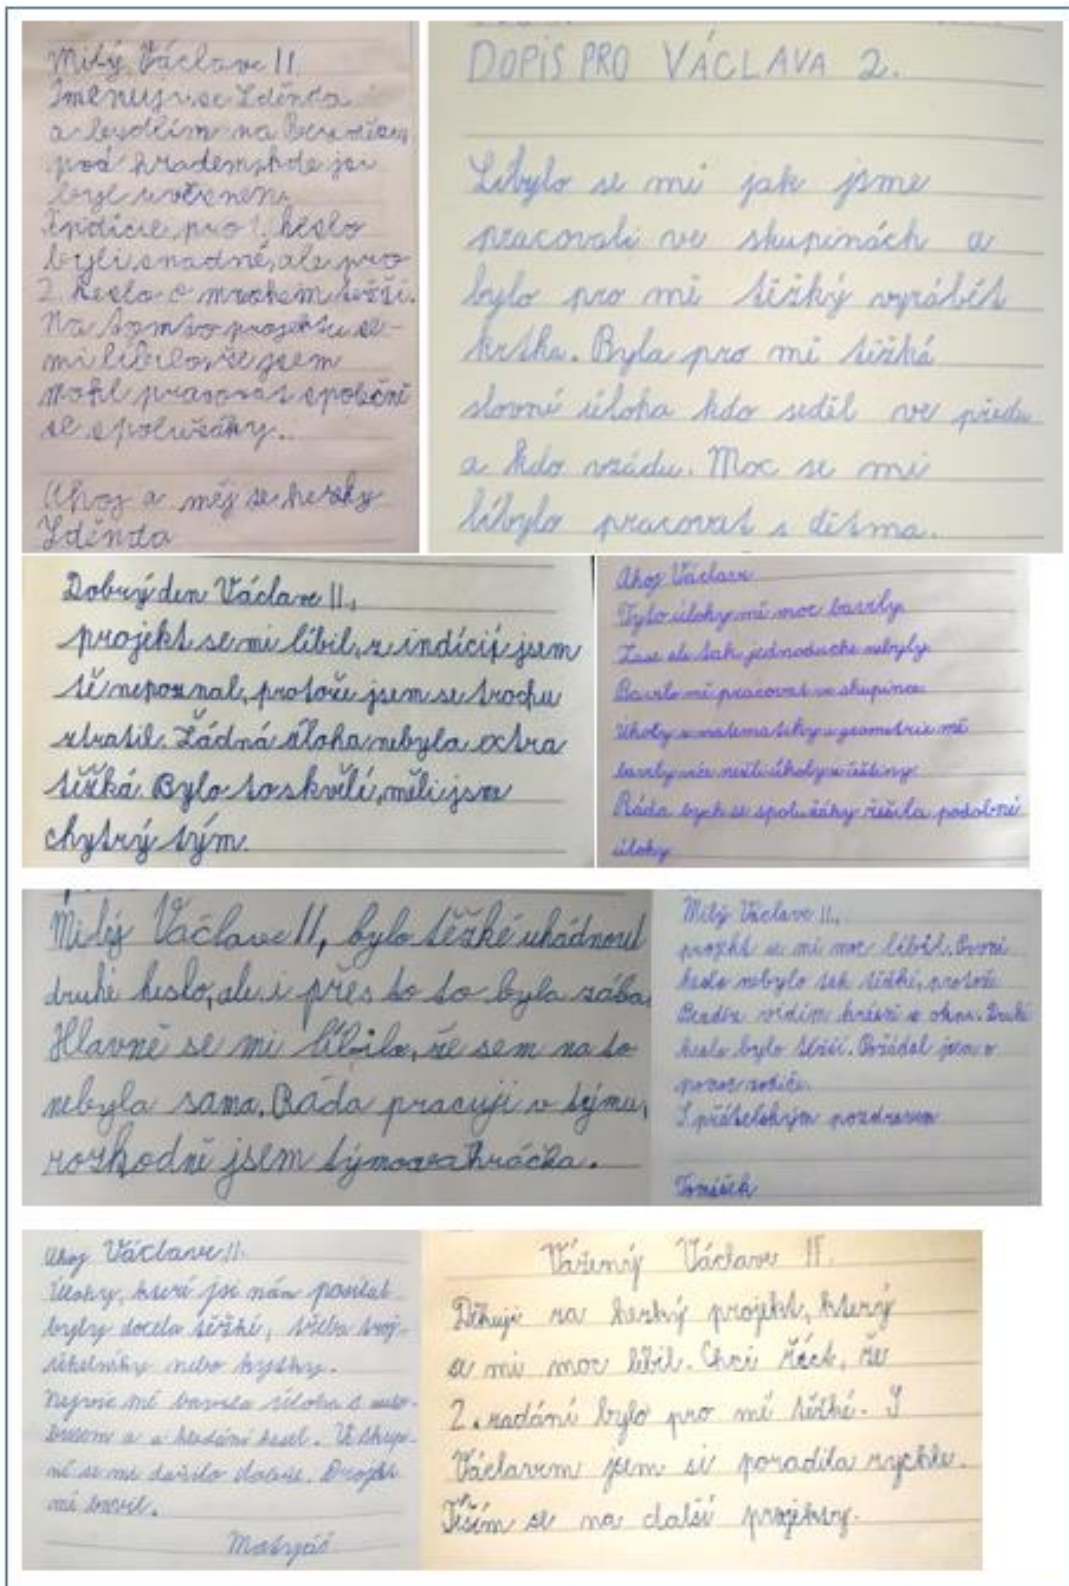 Milý Václave II.
Jmenuji se Zděnda
a bydlím na Bezdězem,
pod hradem, kde jsi
byl uvězněn.
Indicie pro 1. heslo
byli snadné, ale pro
2. heslo o mrohem těžší.
Na tomto projektu se
mi líbilo, že jsem
mohl pracovat společně
se spolužáky.
Ahoj a měj se hezky
Zděnda
DOPIS PRO VÁCLAVA 2.
Líbylo se mi jak jsme
pracovali ve skupinách a
bylo pro mě těžký vyrábět
krtka. Byla pro mě těžká
slovní úloha kdo seděl ve předu
a kdo vzádu. Moc se mi
líbylo pracovat s dětma.
Dobrý den Václave II.,
projekt se mi líbil, z indícií jsem
tě nepoznal, protože jsem se trochu
ztratil. Žádná úloha nebyla extra
těžká. Bylo to skvělí, měli jsme
chytrý tým.
Ahoj Václave
Tyto úlohy mě moc bavily.
Zase ale tak jednoduché nebyly.
Bavilo mě pracovat ve skupince.
Úkoly z matematiky a geometrie mě
bavily více nežli úkoly z češtiny.
Ráda bych se spolužáky řešila podobné
úlohy.
Milý Václave II, bylo těžké uhádnout
druhé heslo, ale i přes to to byla zába
Hlavně se mi líbilo, že sem na to
nebyla sama. Ráda pracuji v týmu,
rozhodně jsem týmová hráčka.
Milý Václave II.,
projekt se mi moc líbil. První
heslo nebylo tak těžké, protože
Bezděz vidím hezsí z okna. Druhé
heslo bylo těžší. Požádal jsem o
pomoc rodiče.
S přátelským pozdravem
Tomášek
Ahoj Václave II.
Úlohy, které jsi nám posílal
byly docela těžké, třeba troj-
úhelníky nebo kytky.
Nejvíc mě bavila úloha s auto-
busem a a hledání hesel. Ve skupi-
ně se mi dařilo dobře. Projekt
mě bavil.
Matyáš
Vážený Václave II.
Děkuji za hezký projekt, který
se mi moc líbil. Chci říct, že
2. zadání bylo pro mě těžké. S
Václavem jsem si poradila rychle.
Těším se na další projekty.